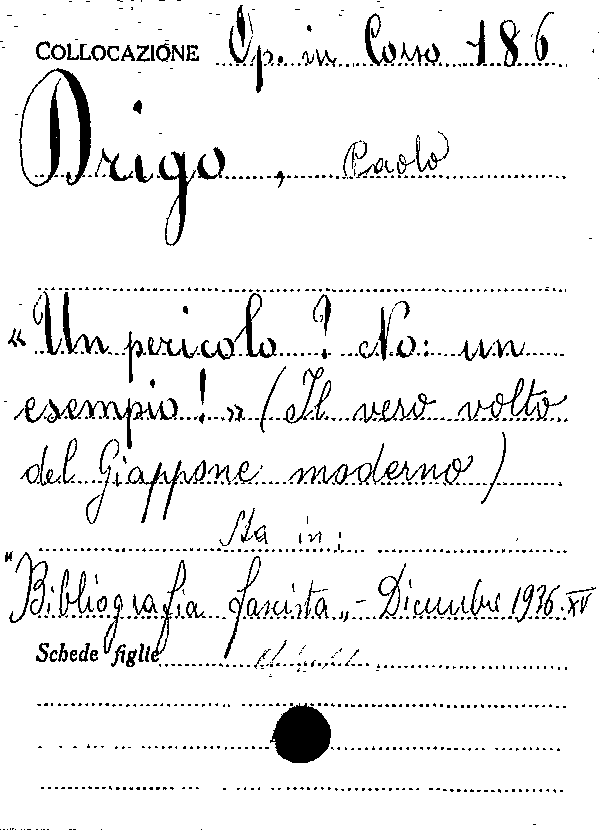 COLLOCAZIONE Op. in Corso 186
Drigo, Paolo
«Un pericolo? No: un
esempio!» (Il vero volto
del Giappone moderno)
Sta in:
"Bibliografia fascista„ - Dicembre 1936. XV
Schede figlie